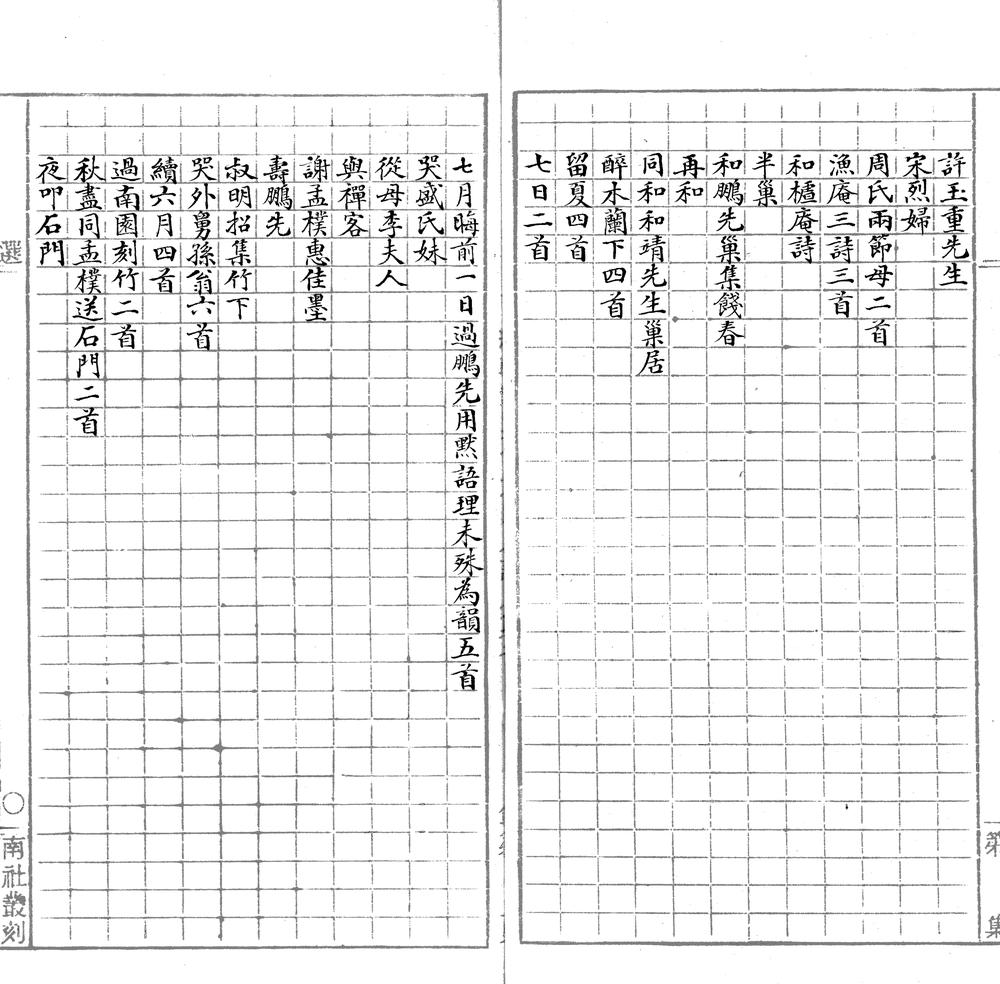 許玉重先生
宋烈婦
周氏兩節母二首
漁庵三詩三首
和櫨庵詩
半巢
和鵬先巢集餞春
再和
同和和靖先生巢居
醉木蘭下四首
留夏四首
七日二首
第 集
七月晦前一日過鵬先用默語理未殊為韻五首
哭盛氏妹
從母李夫人
與禪客
謝孟樸惠佳墨
壽鵬先
叔明招集竹下
哭外舅孫翁六首
續六月四首
過南園刻竹二首
秋盡同孟樸送石門二首
夜叩石門
選
〇
南社叢刻